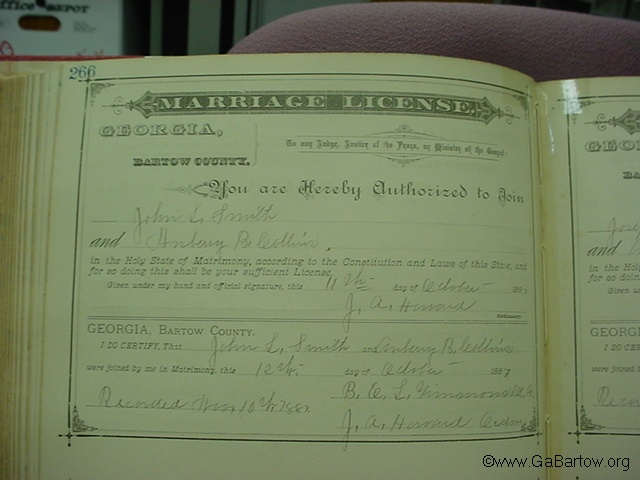 Office DEPOT
266
MARRIAGE LICENSE.
GEORGIA,
BARTOW COUNTY.
To any Judge, Justice of the Peace, or Minister of the Gospel:
You are Hereby Authorized to Join
John L. Smith
and B. Collins,
in the Holy State of Matrimony, according to the Constitution and Laws of this State, and
for so doing this shall be your sufficient License.
Given under my hand and official signature, this 11th day of October 188
J. A. Howard
Ordinary.
GEORGIA, BARTOW COUNTY.
I DO CERTIFY, That John L. Smith and B. Collins
were joined by me in Matrimony, this 12th day of October 1887
B. E. L.
Recorded Nov 10th 1887
J. A. Howard
©www.GaBartow.org